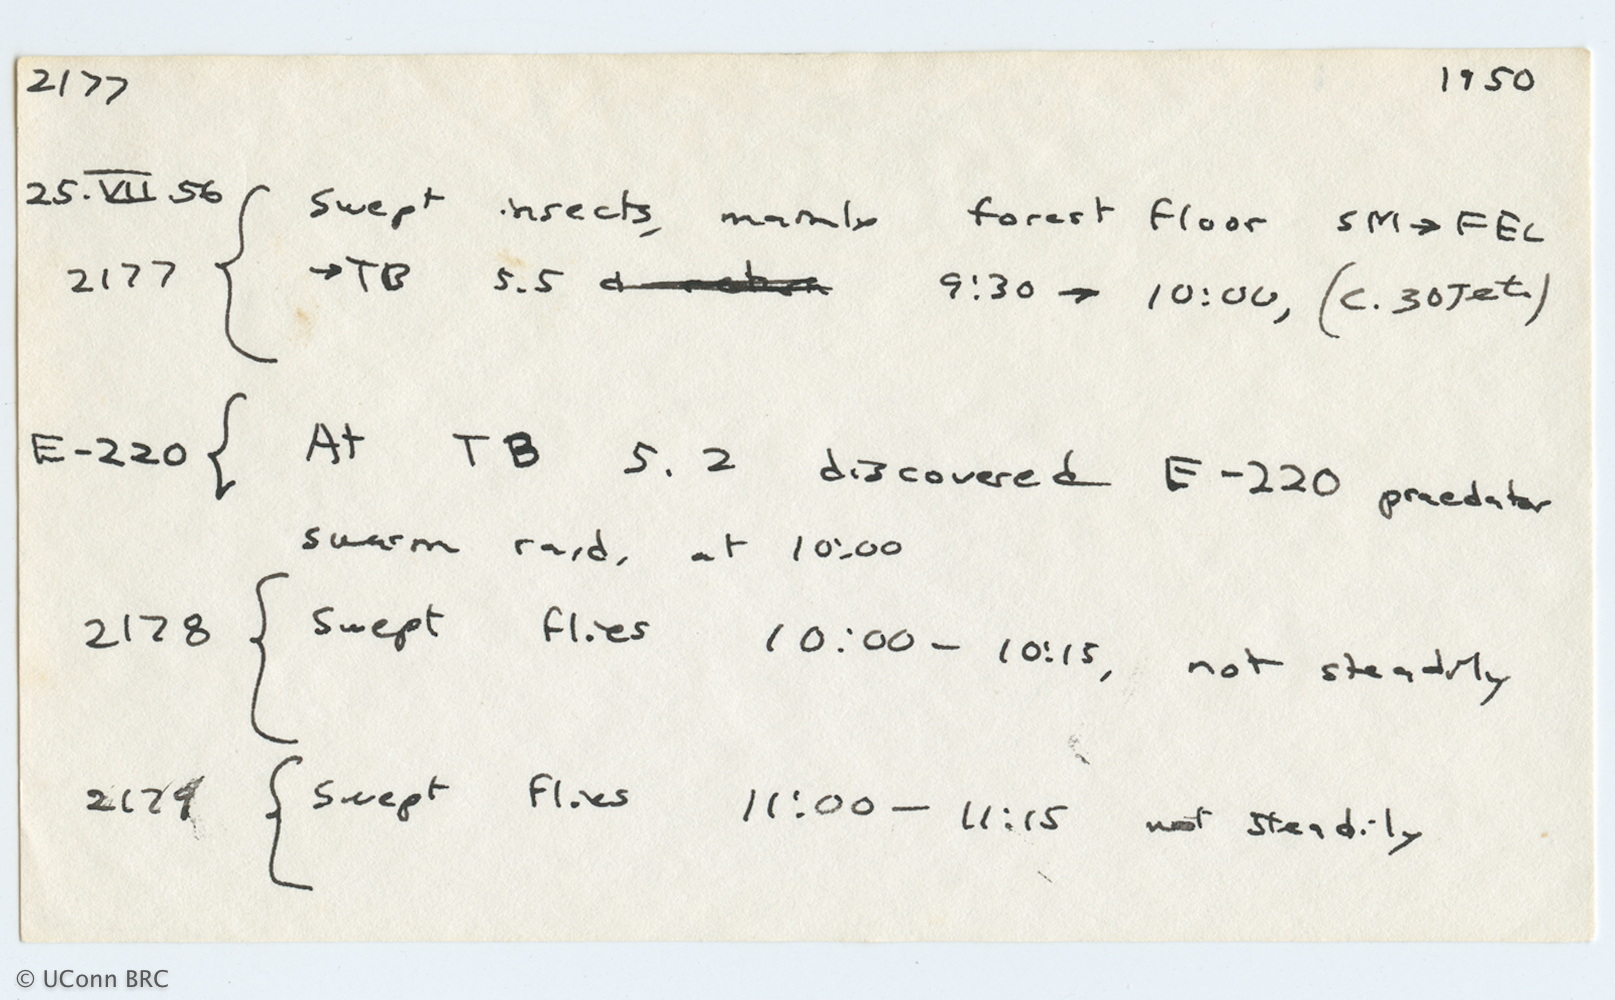 2177 1950
25.VII.56 Swept insects, mainly forest floor SM→FEL
2177 →TB 5.5 9:30 → 10:00, (c. 30 Jet.)
E-220 At TB 5.2 discovered E-220 praedator
swarm raid, at 10:00
2178 Swept flies 10:00 - 10:15, not steadily
2179 Swept flies 11:00 - 11:15 not steadily
© UConn BRC